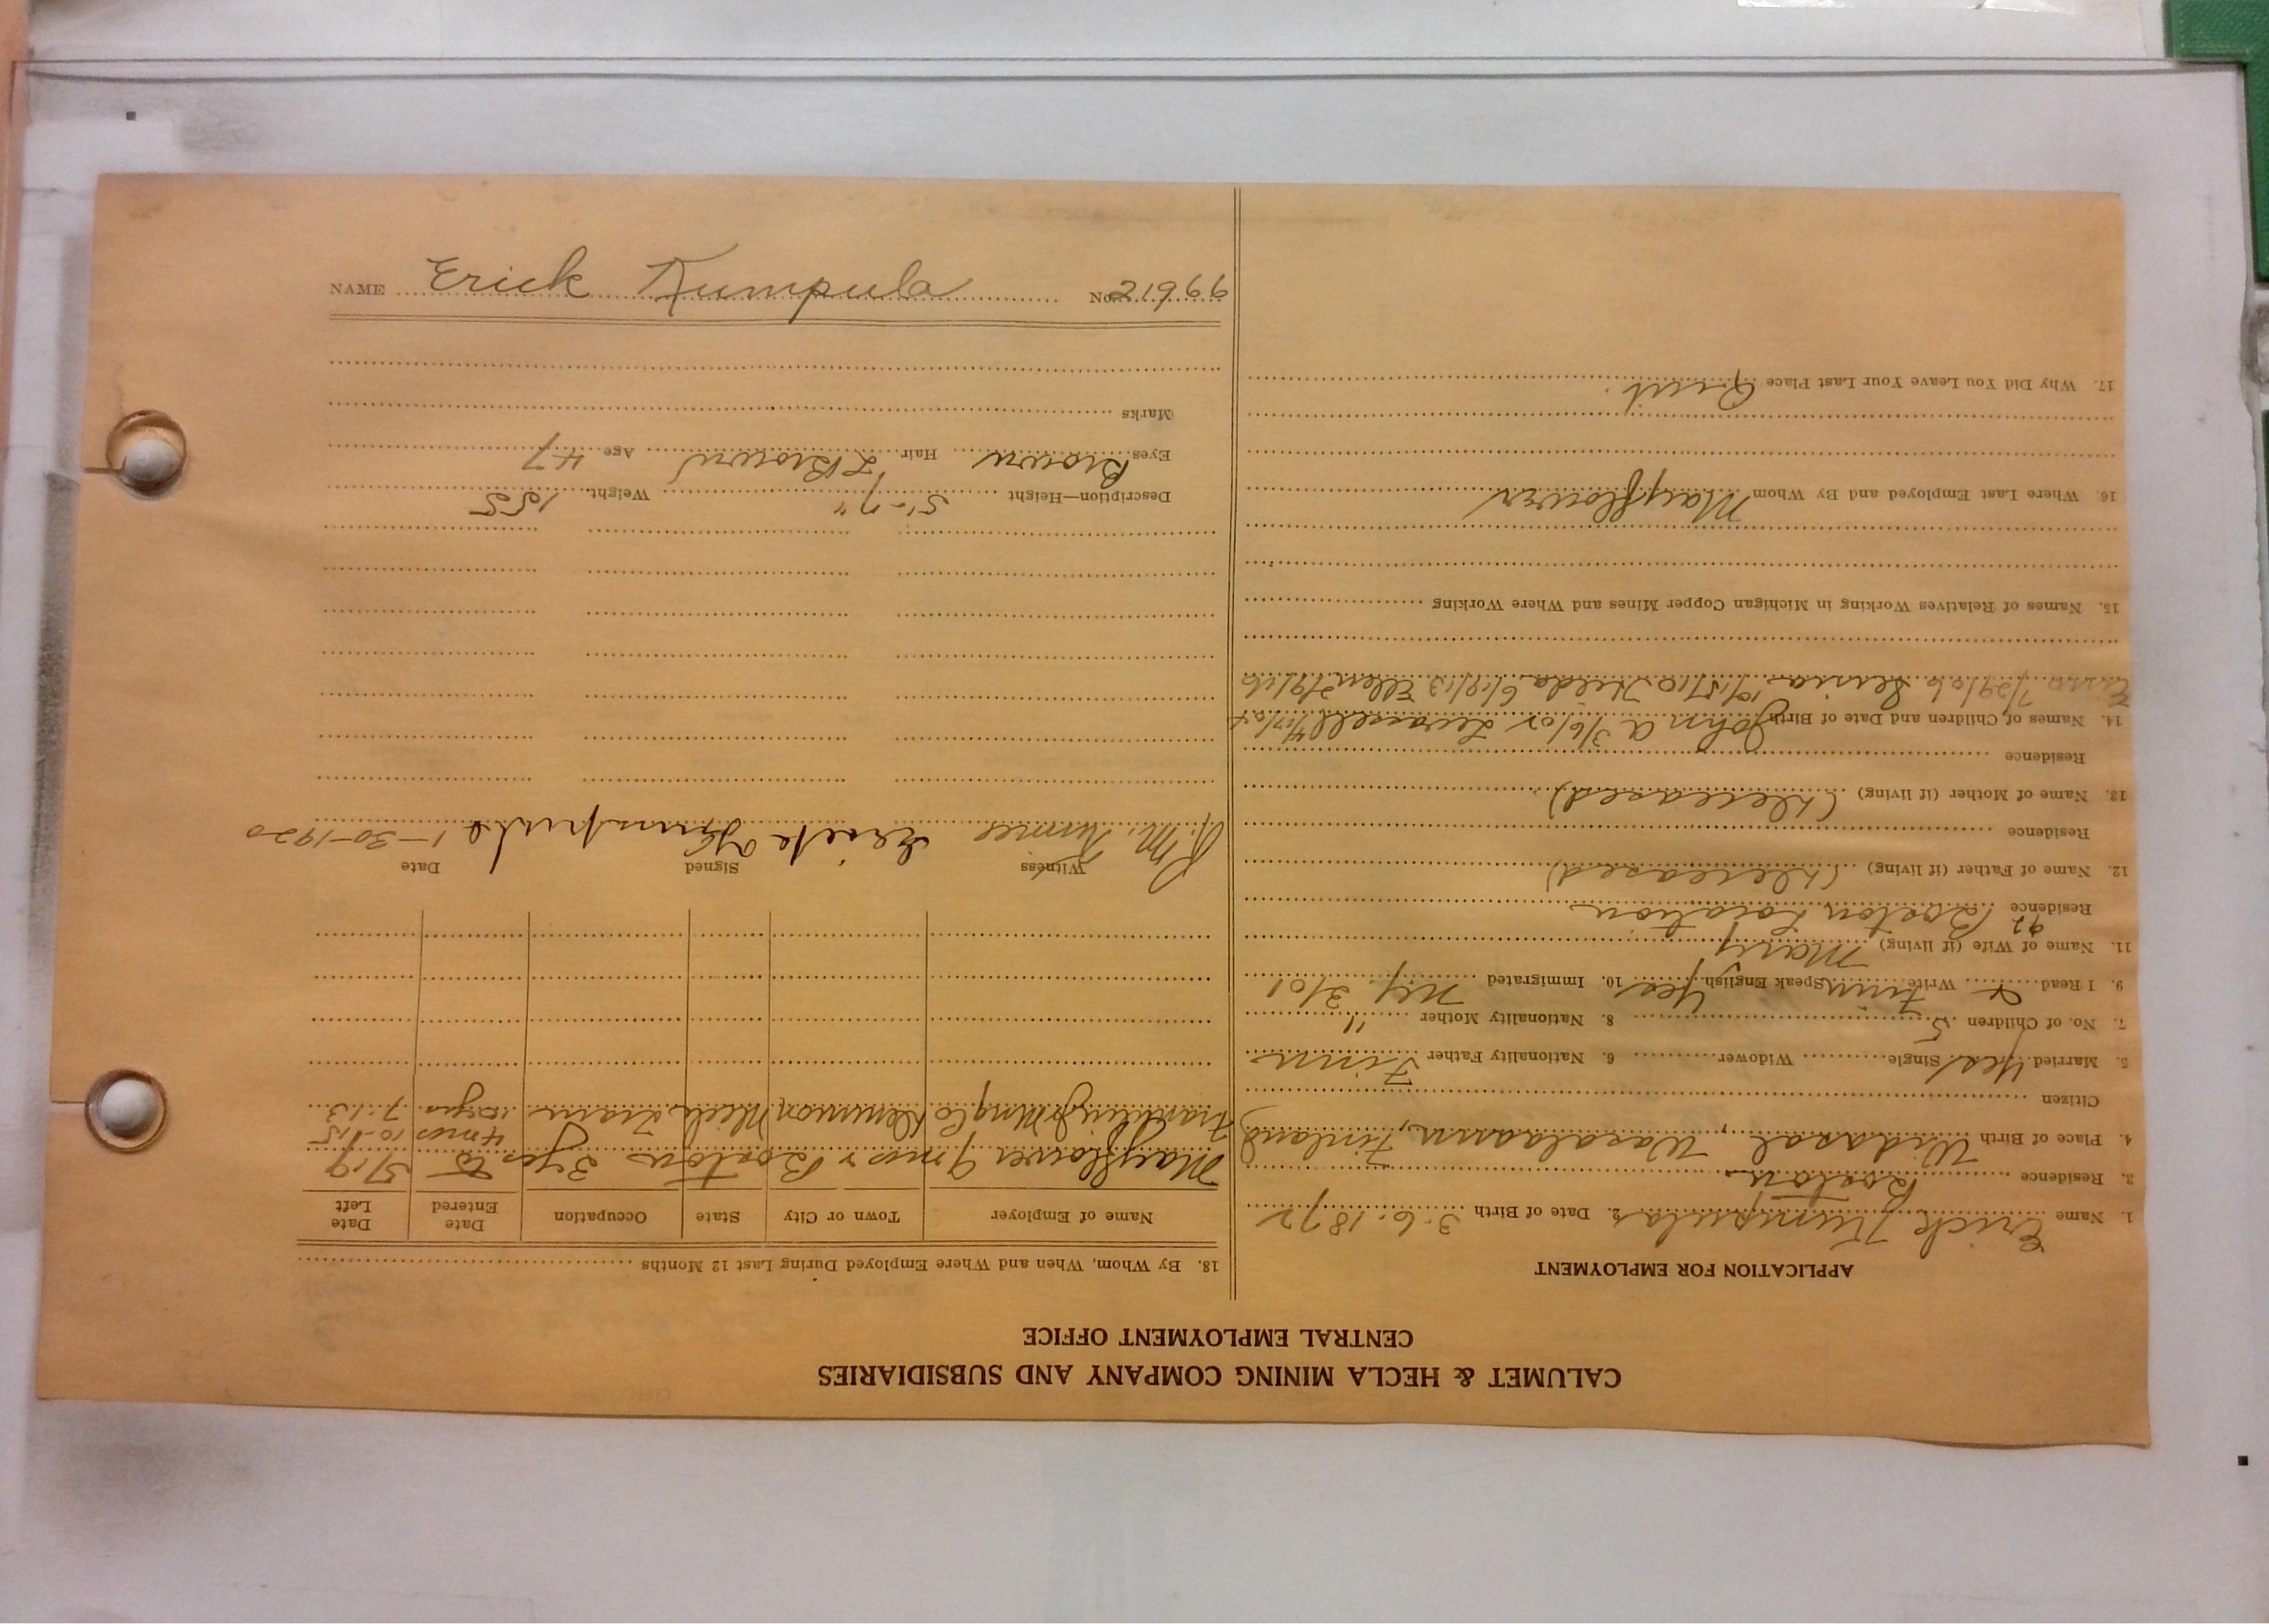 CALUMET & HECLA MINING COMPANY AND SUBSIDIARIES
CENTRAL EMPLOYMENT OFFICE
APPLICATION FOR EMPLOYMENT
1. Name Erick Kumpula 2. Date of Birth 3-6-1872
3. Residence Boston
4. Place of Birth Wasalaann, Finland
Citizen
5. Married Yes Single Widower 6. Nationality Father Finn
7. No. of Children 5 8. Nationality Mother "
9. I Read & Write Finn Speak English Yes 10. Immigrated N.Y. 3/01
11. Name of Wife (if living) Mary
Residence 92 Boston Location
12. Name of Father (if living) (Deceased)
Residence
13. Name of Mother (if living) (Deceased)
Residence
14. Names of Children and Date of Birth John A
7/29/06 10/15/10 Hilda 6/19/13 Ellen
15. Names of Relatives Working in Michigan Copper Mines and Where Working
16. Where Last Employed and By Whom Mayflower
17. Why Did You Leave Your Last Place Quit.
18. By Whom, When and Where Employed During Last 12 Months
Name of Employer Town or City State Occupation Date Entered Date Left
Mayflower 9 mos & Boston 3 yrs to 5/19
4 mos 10-1-15
Franklin Mng Co Demmon Mich Tram yrs. 7-13
Witness Signed Date
R. M. Erick 1-30-1920
Description—Height 5'-7" Weight 155
Eyes Brown Hair L Brown Age 47
Marks
NAME Erick Kumpula No. 21966